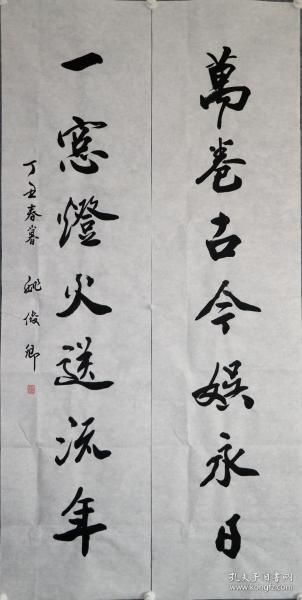 萬卷古今娛永日
一窓燈火送流年
丁丑春暮 姚俊卿
孔夫子旧书网